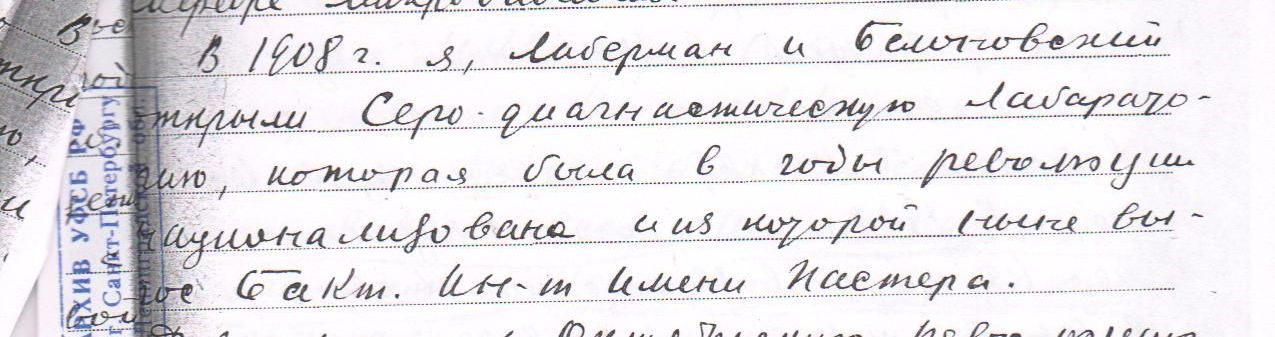 В 1908 г. я, Либерман и Белоновский
открыли Серо-диагнистическую Лабарато-
рию, которая была в годы революции
национализована и из которой ныне вы-
рос Бакт. Ин-т имени Пастера.
АРХИВ УФСБ РФ
Санкт-Петербургу